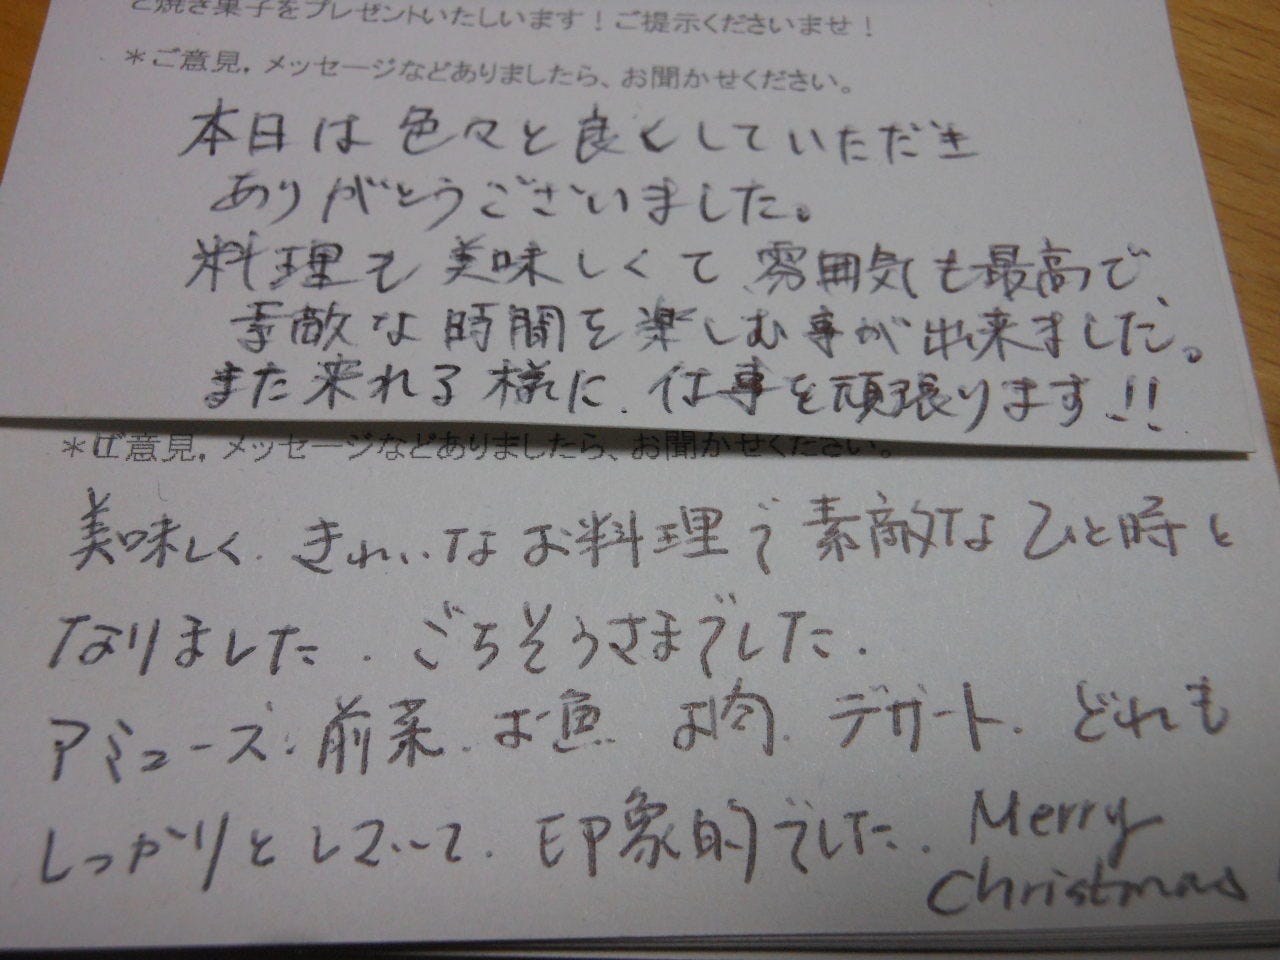 と焼き菓子をプレゼントいたしいます！ご提示くださいませ！
＊ご意見，メッセージなどありましたら、お聞かせください。
本日は色々と良くしていただき
ありがとうございました。
料理も美味しくて雰囲気も最高で、
素敵な時間を楽しむ事が出来ました。
また来れる様に、仕事を頑張ります!!
＊ご意見，メッセージなどありましたら、お聞かせください。
美味しく、きれいなお料理で素敵なひと時と
なりました．ごちそうさまでした．
アミューズ、前菜、お魚 お肉、デザート、どれも
しっかりとしていて、印象的でした．Merry
Christmas